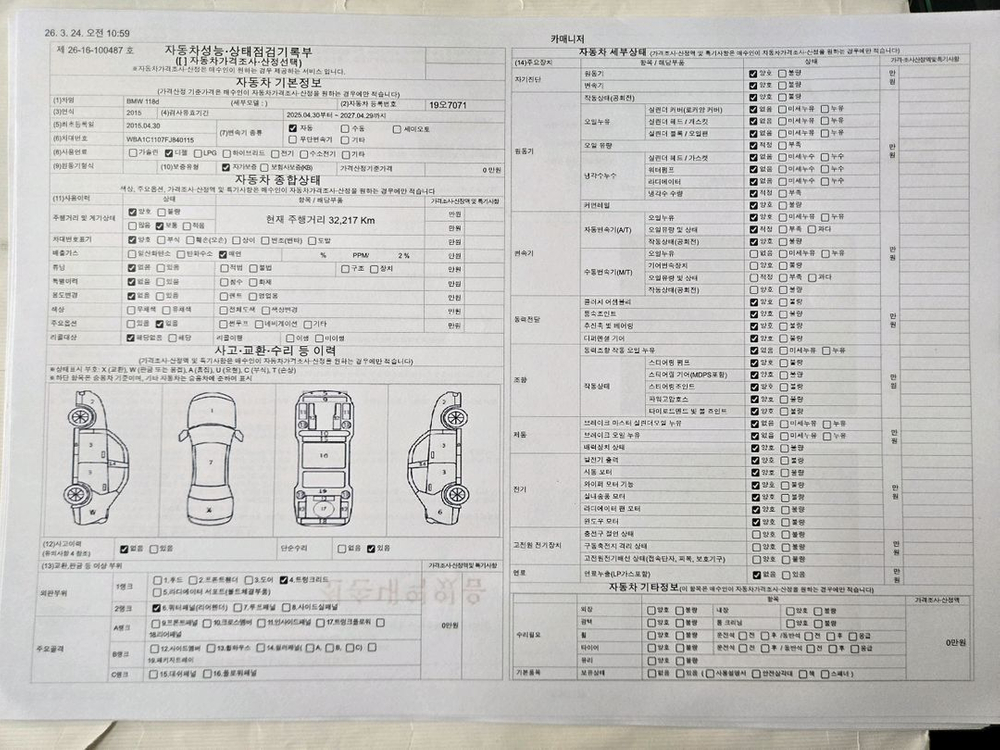 26. 3. 24. 오전 10:59
카매니저
제 26-16-100487 호
자동차성능·상태점검기록부
([ ] 자동차가격조사·산정선택)
※자동차가격조사·산정은 매수인이 원하는 경우 제공하는 서비스 입니다.
자동차 기본정보
(가격산정 기준가격은 매수인이 자동차가격조사·산정을 원하는 경우에만 적습니다)
(1)차명 BMW 118d (세부모델 : ) (2)자동차 등록번호 19오7071
(3)연식 2015 (4)검사유효기간 2025.04.30부터 ~ 2027.04.29까지
(5)최초등록일 2015.04.30
(7)변속기 종류 자동 수동 세미오토
무단변속기 기타
(6)차대번호 WBA1C1107FJ840115
(8)사용연료 가솔린 디젤 LPG 하이브리드 전기 수소전기 기타
(9)원동기형식 (10)보증유형 자가보증 보험사보증(KB) 가격산정기준가격 0 만원
자동차 종합상태
색상, 주요옵션, 가격조사·산정액 및 특기사항은 매수인이 자동차가격조사·산정을 원하는 경우에만 적습니다
(11)사용이력 상태 항목 / 해당부품 가격조사·산정액 및 특기사항
주행거리 및 계기상태 양호 불량 만원
많음 보통 적음 현재 주행거리 32,217 Km 만원
차대번호표기 양호 부식 훼손(오손) 상이 변조(변타) 도말 만원
배출가스 일산화탄소 탄화수소 매연 % PPM/ 2 % 만원
튜닝 없음 있음 적법 불법 구조 장치 만원
특별이력 없음 있음 침수 화재 만원
용도변경 없음 있음 렌트 영업용 만원
색상 무채색 유채색 전체도색 색상변경 만원
주요옵션 있음 없음 썬루프 네비게이션 기타 만원
리콜대상 해당없음 해당 리콜이행 이행 미이행
사고·교환·수리 등 이력
(가격조사·산정액 및 특기사항은 매수인이 자동차가격조사·산정을 원하는 경우에만 적습니다)
※상태표시 부호: X (교환), W (판금 또는 용접), A (흠집), U (요철), C (부식), T (손상)
※하단 항목은 승용차 기준이며, 기타 자동차는 승용차에 준하여 표시
(12)사고이력
(유의사항 4 참조) 없음 있음 단순수리 없음 있음
(13)교환,판금 등 이상 부위 가격조사·산정액 및 특기사항
외판부위 1랭크 1.후드 2.프론트휀더 3.도어 4.트렁크리드
5.라디에이터 서포트(볼트체결부품)
2랭크 6.쿼터패널(리어휀더) 7.루프패널 8.사이드실패널
주요골격 A랭크 9.프론트패널 10.크로스멤버 11.인사이드패널 17.트렁크플로어
18.리어패널
0만원
B랭크 12.사이드멤버 13.휠하우스 14.필러패널( A, B, C)
19.패키지트레이
C랭크 15.대쉬패널 16.플로어패널
자동차 세부상태 (가격조사·산정액 및 특기사항은 매수인이 자동차가격조사·산정을 원하는 경우에만 적습니다)
(14)주요장치 항목 / 해당부품 상태 가격·조사산정액및특기사항
자기진단 원동기 양호 불량 만원
변속기 양호 불량
원동기 작동상태(공회전) 양호 불량 만원
오일누유 실린더 커버(로커암 커버) 없음 미세누유 누유
실린더 헤드 / 개스킷 없음 미세누유 누유
실린더 블록 / 오일팬 없음 미세누유 누유
오일 유량 적정 부족
냉각수누수 실린더 헤드 / 가스켓 없음 미세누수 누수
워터펌프 없음 미세누수 누수
라디에이터 없음 미세누수 누수
냉각수 수량 적정 부족
커먼레일 양호 불량
변속기 자동변속기(A/T) 오일누유 없음 미세누유 누유 만원
오일유량 및 상태 적정 부족 과다
작동상태(공회전) 양호 불량
수동변속기(M/T) 오일누유 없음 미세누유 누유
기어변속장치 양호 불량
오일유량 및 상태 적정 부족 과다
작동상태(공회전) 양호 불량
동력전달 클러치 어셈블리 양호 불량 만원
등속조인트 양호 불량
추진축 및 베어링 양호 불량
디퍼렌셜 기어 양호 불량
조향 동력조향 작동 오일 누유 없음 미세누유 누유 만원
작동상태 스티어링 펌프 양호 불량
스티어링 기어(MDPS포함) 양호 불량
스티어링조인트 양호 불량
파워고압호스 양호 불량
타이로드엔드 및 볼 죠인트 양호 불량
제동 브레이크 마스터 실린더오일 누유 없음 미세누유 누유 만원
브레이크 오일 누유 없음 미세누유 누유
배력장치 상태 양호 불량
전기 발전기 출력 양호 불량 만원
시동 모터 양호 불량
와이퍼 모터 기능 양호 불량
실내송풍 모터 양호 불량
라디에이터 팬 모터 양호 불량
윈도우 모터 양호 불량
고전원 전기장치 충전구 절연 상태 양호 불량 만원
구동축전지 격리 상태 양호 불량
고전원전기배선 상태(접속단자, 피복, 보호기구) 양호 불량
연료 연료누출(LP가스포함) 없음 있음
자동차 기타정보 (이 항목은 매수인이 자동차가격조사·산정을 원하는 경우에만 적습니다)
항목 가격조사·산정액
수리필요 외장 양호 불량 내장 양호 불량
광택 양호 불량 룸 크리닝 양호 불량
휠 양호 불량 운전석 전 후 / 동반석 전 후 응급
타이어 양호 불량 운전석 전 후 / 동반석 전 후 응급
유리 양호 불량
0만원
기본품목 보유상태 없음 있음 ( 사용설명서 안전삼각대 잭 스패너 )